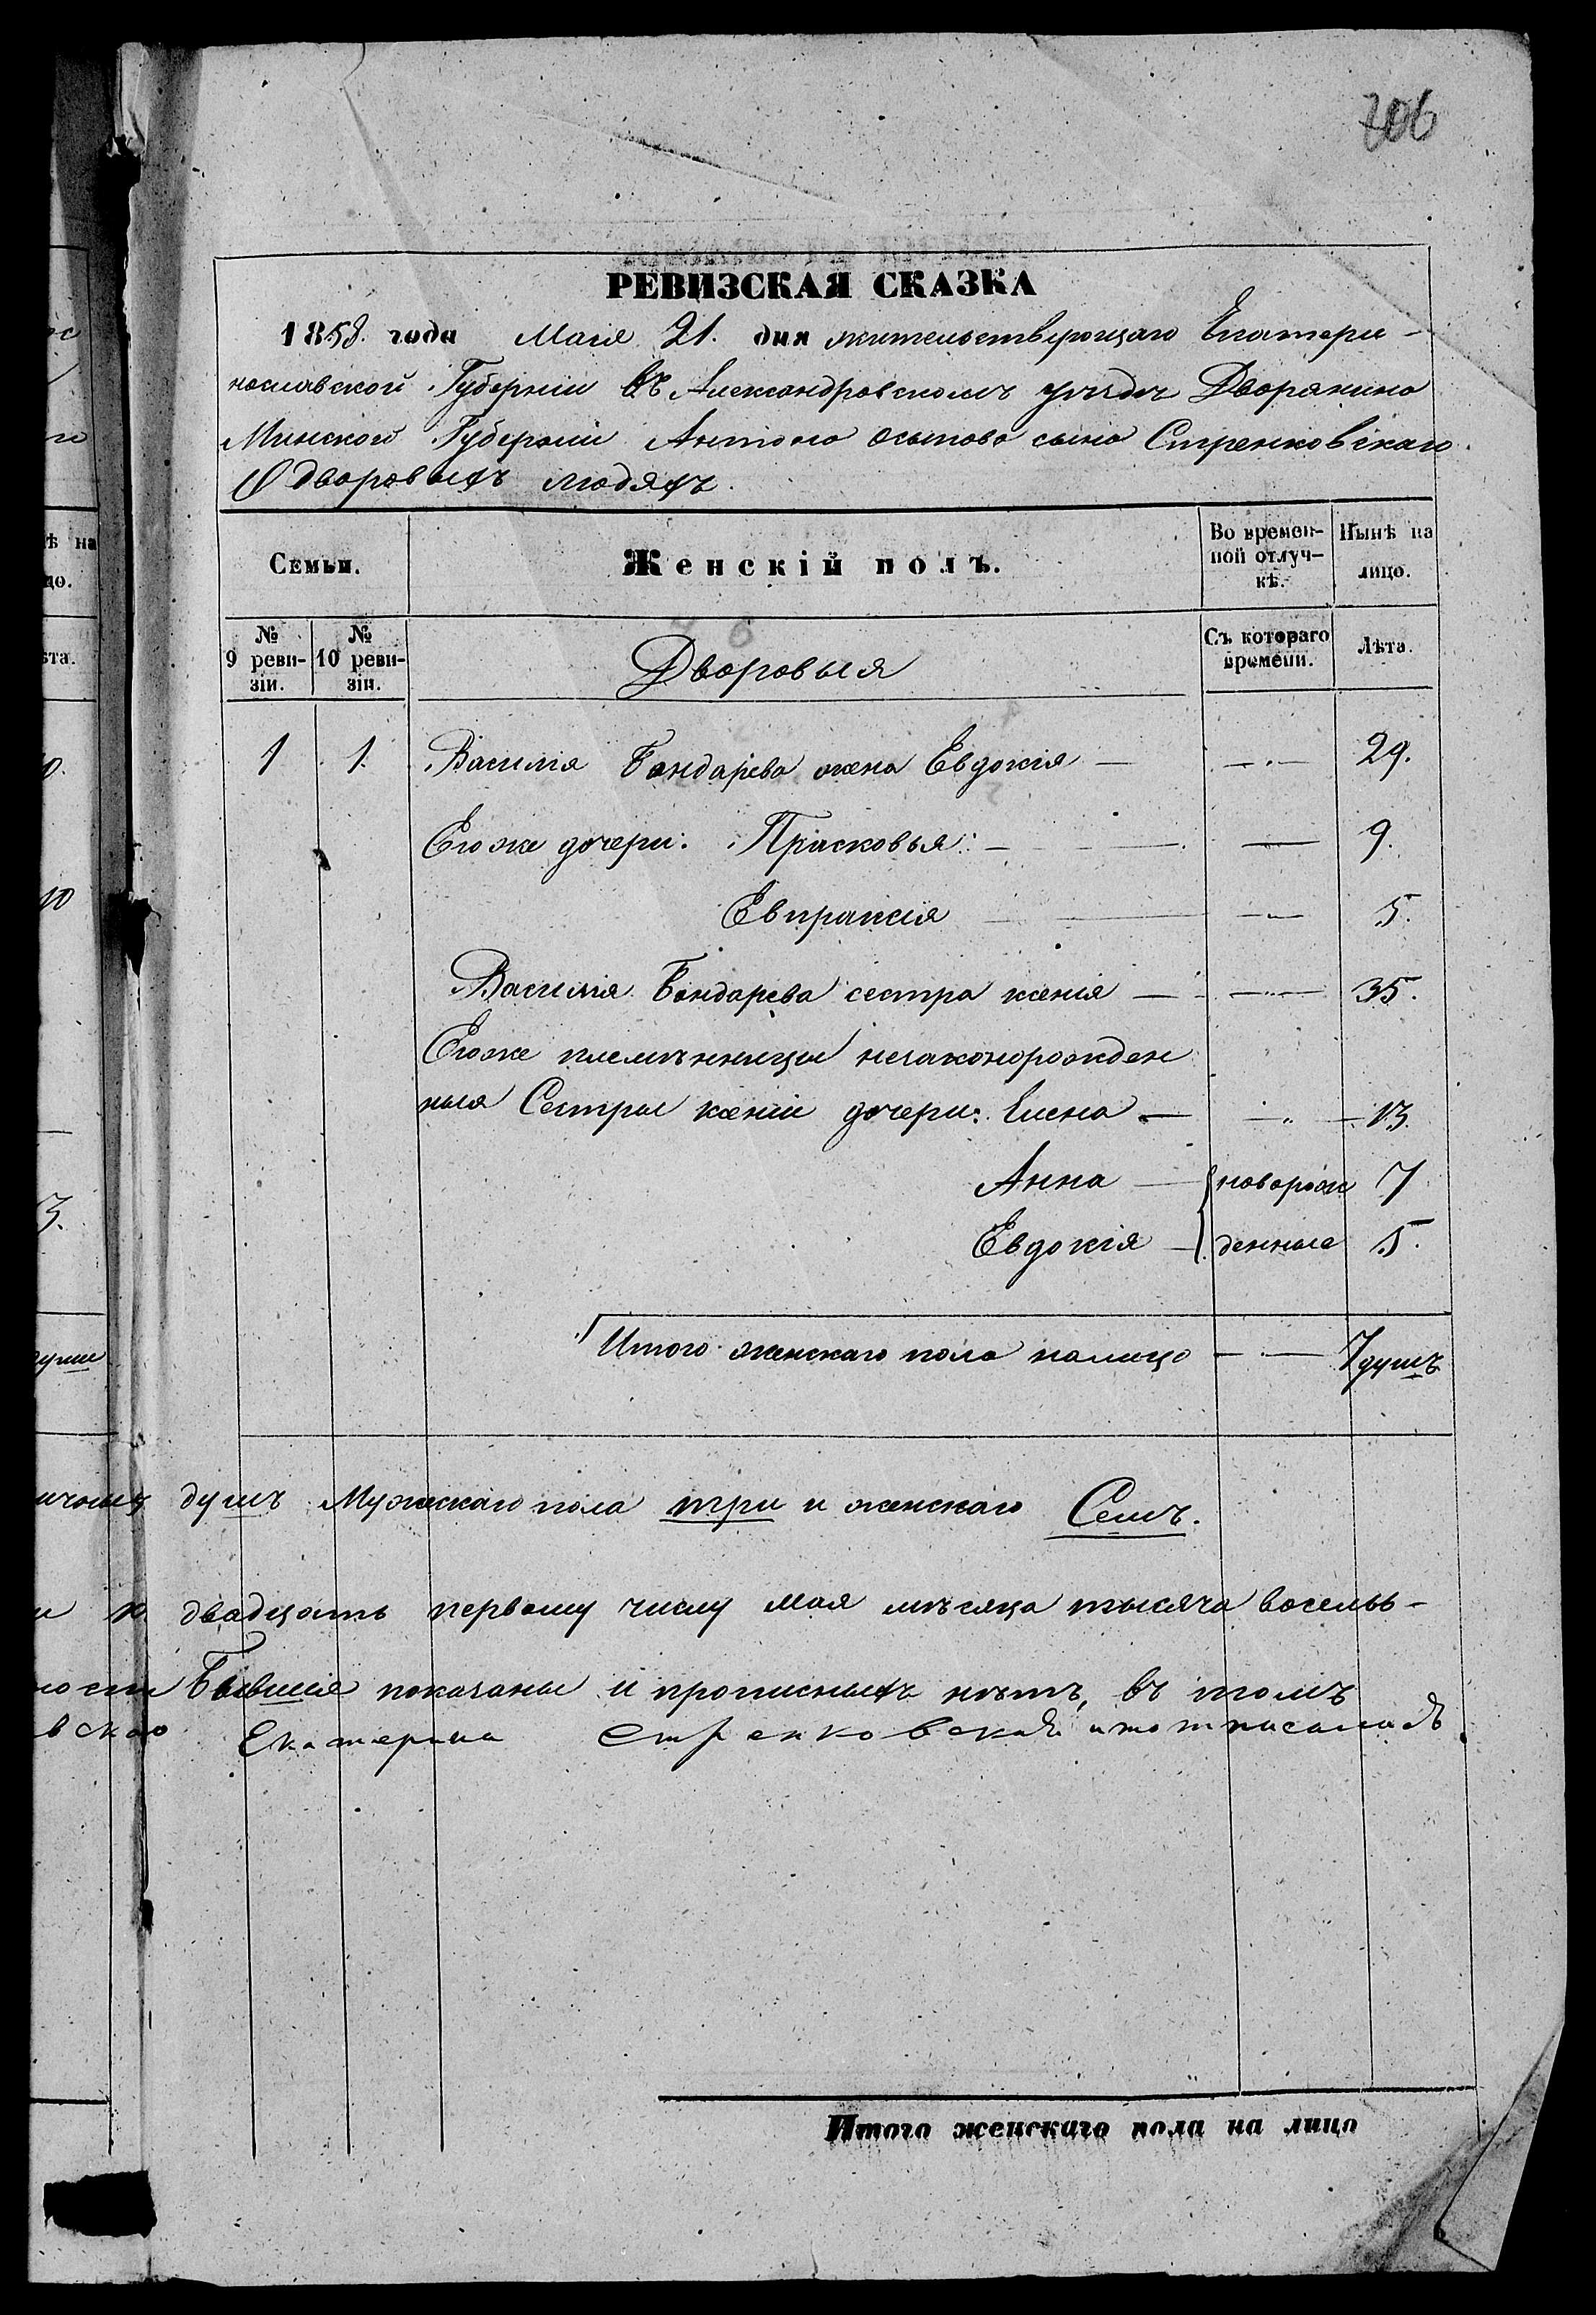 706
РЕВИЗСКАЯ СКАЗКА
1858. года Маія 21. дня жительствующаго Екатери-
нославской Губерніи въ Александровскомъ уѣздѣ Дворянина
Минской Губерніи Антона Осипова сына Стренковскаго
О дворовыхъ людяхъ.
Семьи. Женскій полъ. Во времен- Нынѣ на
ной отлуч- лицо.
кѣ.
№ № Съ котораго Лѣта.
9 реви- 10 реви- Дворовыя времени.
зіи. зіи.
1 1. Василія Бондарева жена Евдокія — 29.
Егоже дочери: Прасковья: — 9.
Евпраксія — 5.
Василія Бондарева сестра ксенія — 35.
Егоже племѣнницы незаконорожден
ныя Сестры ксеніи дочери: Елена — 13.
Анна — новорож 7
Евдокія — денные 5.
Итого женскаго пола налицо — 7 душъ
душъ Мужескаго пола три и женскаго Семъ.
двадцать первому числу мая мѣсяца тысяча восемь-
Бывшіе показаны и прописныхъ нѣтъ, въ томъ
Екатерина Стренковская
Итого женскаго пола на лицо